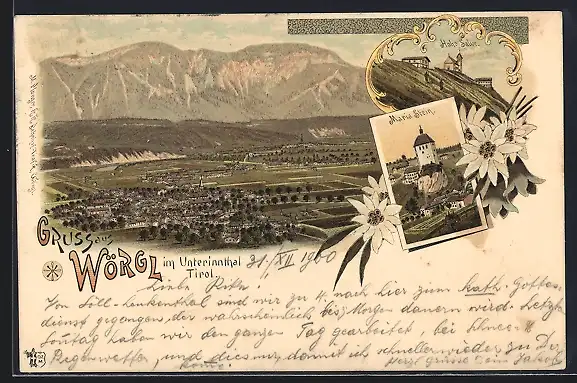 Hohe Salve.
Maria Stein.
GRUSS aus
WÖRGL im Unterinnthal
Tirol.
31/XII 1900
Liebe
Von Söll-Leukenthal sind wir zu 4. nach hier zum kath. Gottes-
dienst gegangen, der wahrscheinlich bis Morgen dauern wird. Letzte
Sonntag haben wir den ganzen Tag gearbeitet, bei
Regenwetter, und dies nur damit ich schnell wieder zu Dir
komme. Herzl. Grüsse Dein Jakob